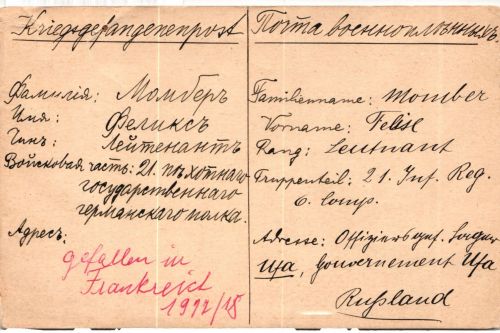 Kriegsgefangenenpost
Фамилія: Момберъ
Имя: Феликсъ
Чинъ: Лейтенантъ
Войсковая часть: 21. пѣхотнаго
государственнаго
германскаго полка.
Адресъ:
gefallen in
Frankreich
Почта военноплѣнныхъ
Familienname: Momber
Vorname: Felix
Rang: Leutnant
Truppenteil: 21. Inf. Reg.
6. Comp.
Adresse: Offiziersgef. Lager
Ufa, Gouvernement Ufa
Rußland